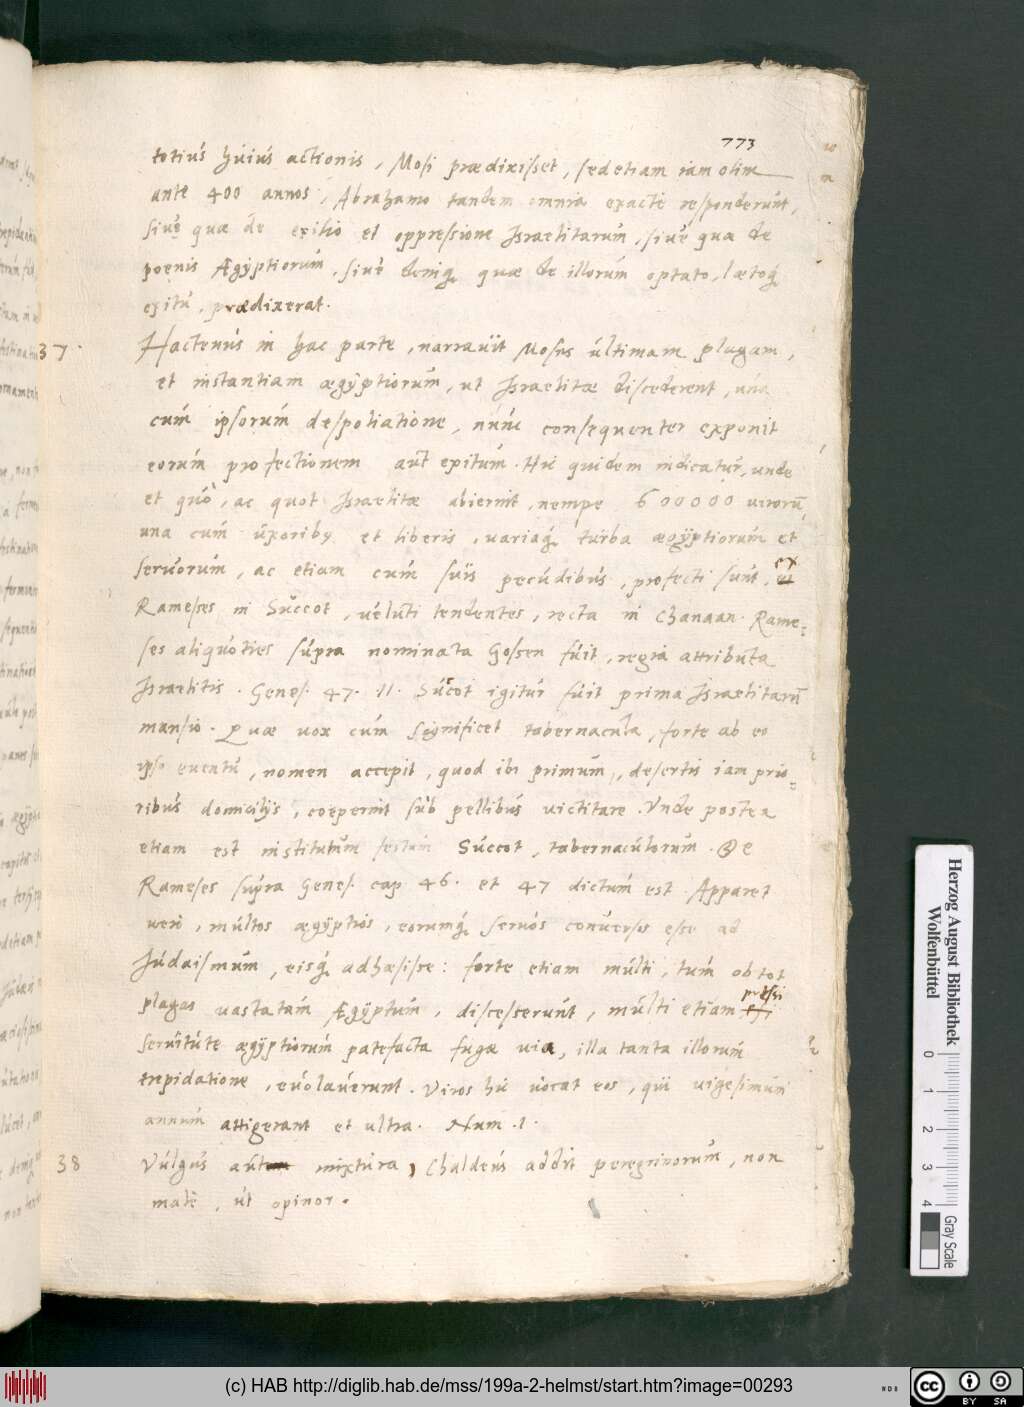 773
totius huius actionis, Mosi prædixisset, sed etiam iam olim
ante 400 annos, Abrahamo tandem omnia exacte responderunt,
siue quæ de exilio et oppressione Israelitarum, siue quæ de
poenis Ægÿptiorum, siue deniq́ quæ de illorum optato, lætoq́
exitu, prædixerat.
37 Hactenus in hac parte, narrauit Moses ultimam plagam,
et instantiam ægÿptiorum, ut Israelitæ discederent, una
cum ipsorum despoliatione, nunc consequenter exponit
eorum profectionem aut exitum. Hic quidem indicatur, unde
et quò, ac quot Israelitæ abierint, nempe 600000 uirorū,
una cum uxoribꝰ et liberis, uariaq́ turba ægÿptiorum et
seruorum, ac etiam cum suis pecudibus, profecti sunt, ex
Rameses in Succot, ueluti tendentes, recta in Chanaan. Rame-
ses aliquoties supra nominata Gossen fuit, regia attributa
Israelitis. Genes. 47. 11. Succot igitur fuit prima Israelitarū
mansio. Quæ uox cum significet tabernacula, forte ab eo
ipso euentu, nomen accepit, quod ibi primum, desertis iam prio-
ribus domicilijs, coeperint sub pellibus uictitare. Unde postea
etiam est institutum festum Succot, tabernaculorum. De
Rameses supra Genes. cap 46. et 47 dictum est. Apparet
uerò, multos ægÿptios, eorumq́ seruos conuersos esse ad
Judaismum, eisq́ adhæsisse: forte etiam multi, tum ob tot
plagas uastatam Ægÿptum, discescerunt, multi etiam pressi
seruitute ægÿptiorum patefacta fugæ uia, illa tanta illorum
trepidatione, euolauerunt. Viros hic uocat eos, qui uigesimum
annum attigerant et ultra. Num. 1.
38 Vulgus aut mixtura, Chaldeus addit peregrinorum, non
malè, ut opinor.
Herzog August Bibliothek
Wolfenbüttel
0 1 2 3 4
Gray Scale
(c) HAB http://diglib.hab.de/mss/199a-2-helmst/start.htm?image=00293
NDB
cc BY SA